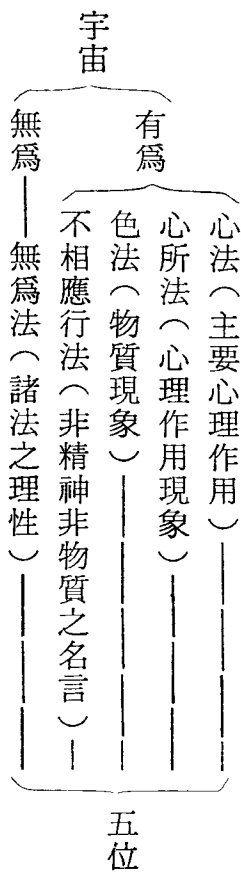 宇宙
有爲
心法(主要心理作用)
心所法(心理作用現象)
色法(物質現象)
不相應行法(非精神非物質之名言)
無爲——無爲法(諸法之理性)
五位